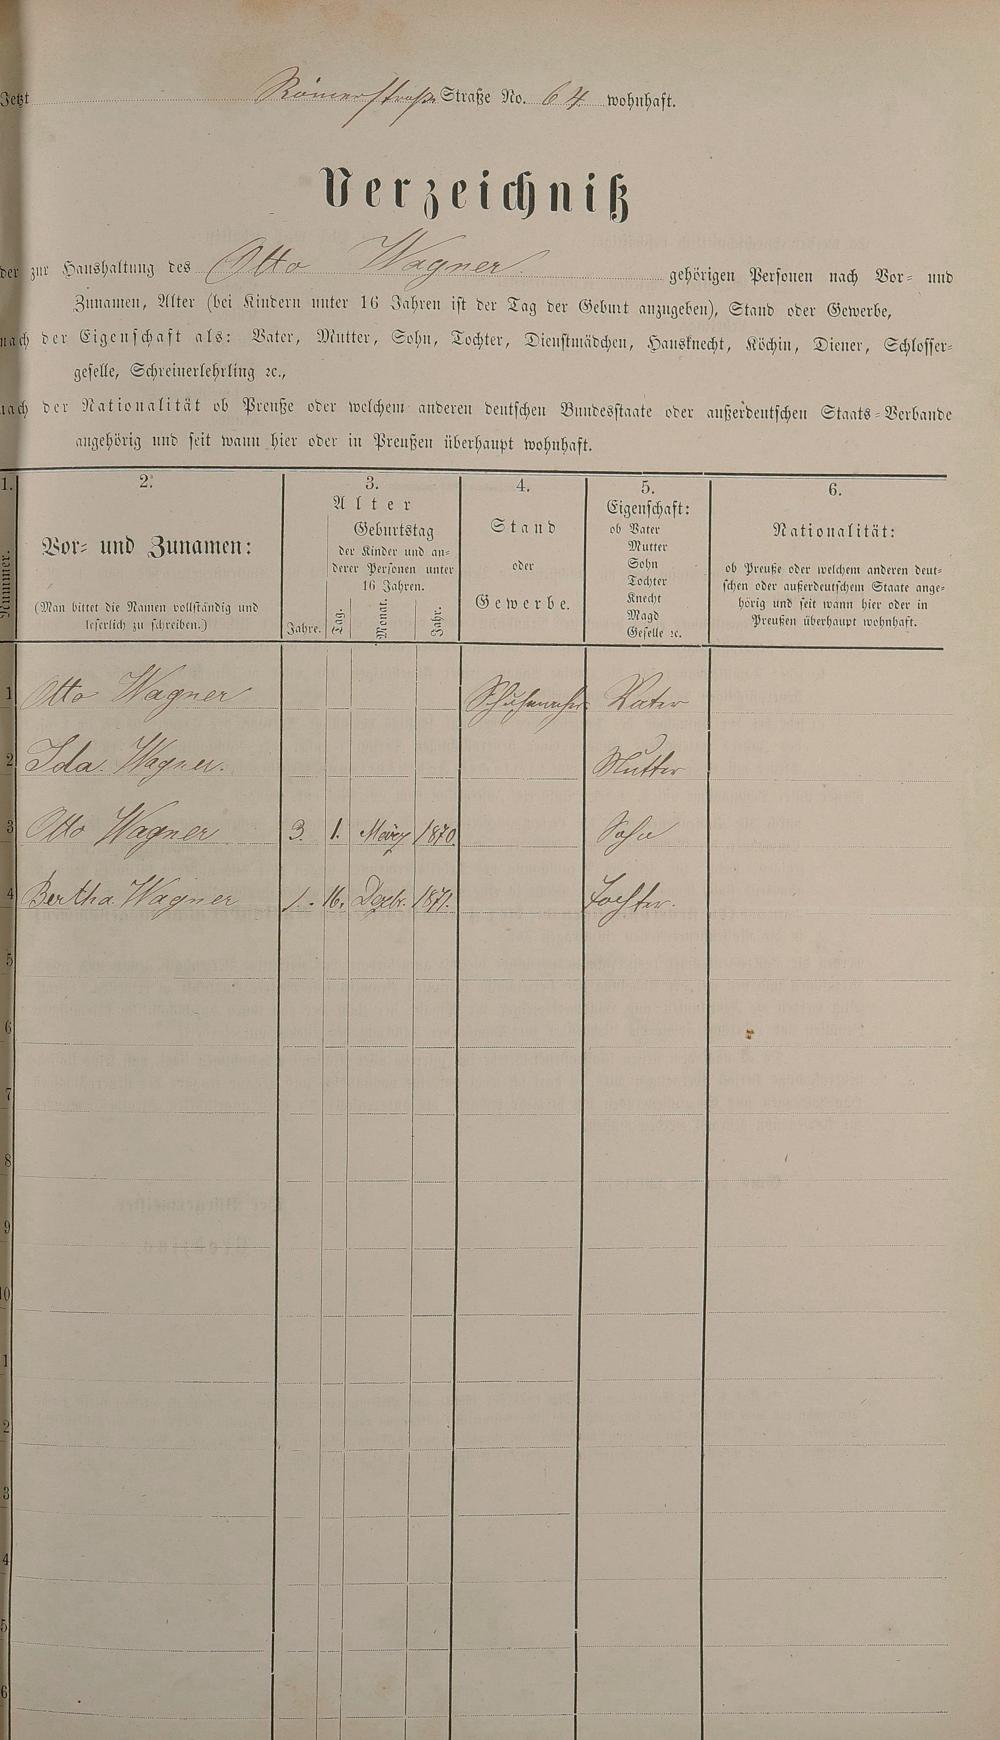 Jetzt Römerstraße Straße No. 64 wohnhaft.
Verzeichniß
der zur Haushaltung des Otto Wagner gehörigen Personen nach Vor- und
Zunamen, Alter (bei Kindern unter 16 Jahren ist der Tag der Geburt anzugeben), Stand oder Gewerbe,
nach der Eigenschaft als: Vater, Mutter, Sohn, Tochter, Dienstmädchen, Hausknecht, Köchin, Diener, Schlosser-
geselle, Schreinerlehrling ꝛc.,
nach der Nationalität ob Preuße oder welchem anderen deutschen Bundesstaate oder außerdeutschen Staats-Verbande
angehörig und seit wann hier oder in Preußen überhaupt wohnhaft.
1.
Nummer.
2.
Vor- und Zunamen:
(Man bittet die Namen vollständig und
leserlich zu schreiben.)
3.
Alter
Jahre.
Geburtstag
der Kinder und an-
derer Personen unter
16 Jahren.
Tag. Monat. Jahr.
4.
Stand
oder
Gewerbe.
5.
Eigenschaft:
ob Vater
Mutter
Sohn
Tochter
Knecht
Magd
Geselle ꝛc.
6.
Nationalität:
ob Preuße oder welchem anderen deut-
schen oder außerdeutschem Staate ange-
hörig und seit wann hier oder in
Preußen überhaupt wohnhaft.
1 Otto Wagner Schuhmacher Vater
2 Ida. Wagner. Mutter
3 Otto Wagner 3. 1. März 1870. Sohn
4 Bertha Wagner 1. 16. Dezbr. 1871. Tochter.
5
6
7
8
9
10
1
2
3
4
5
6